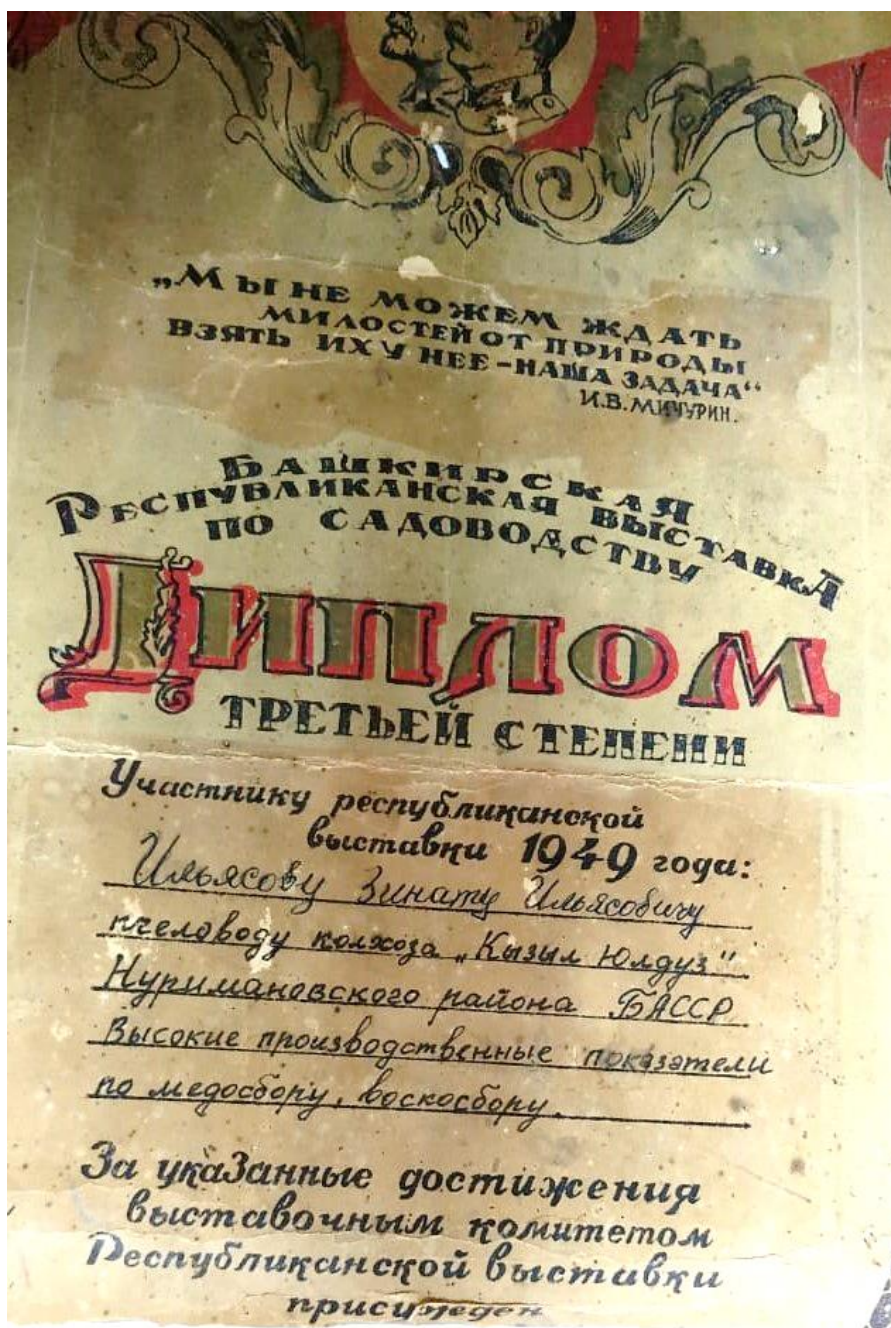 „Мы не можем ждать
милостей от природы
взять их у нее - наша задача“
И.В.Мичурин.
Башкирская
Республиканская выставка
по садоводству
Диплом
третьей степени
Участнику республиканской
выставки 1949 года:
Ильясову Зинату Ильясовичу
пчеловоду колхоза „Кызыл Юлдуз"
Нуримановского района БАССР
Высокие производственные показатели
по медосбору, воскосбору.
За указанные достижения
выставочным комитетом
Республиканской выставки
присужден